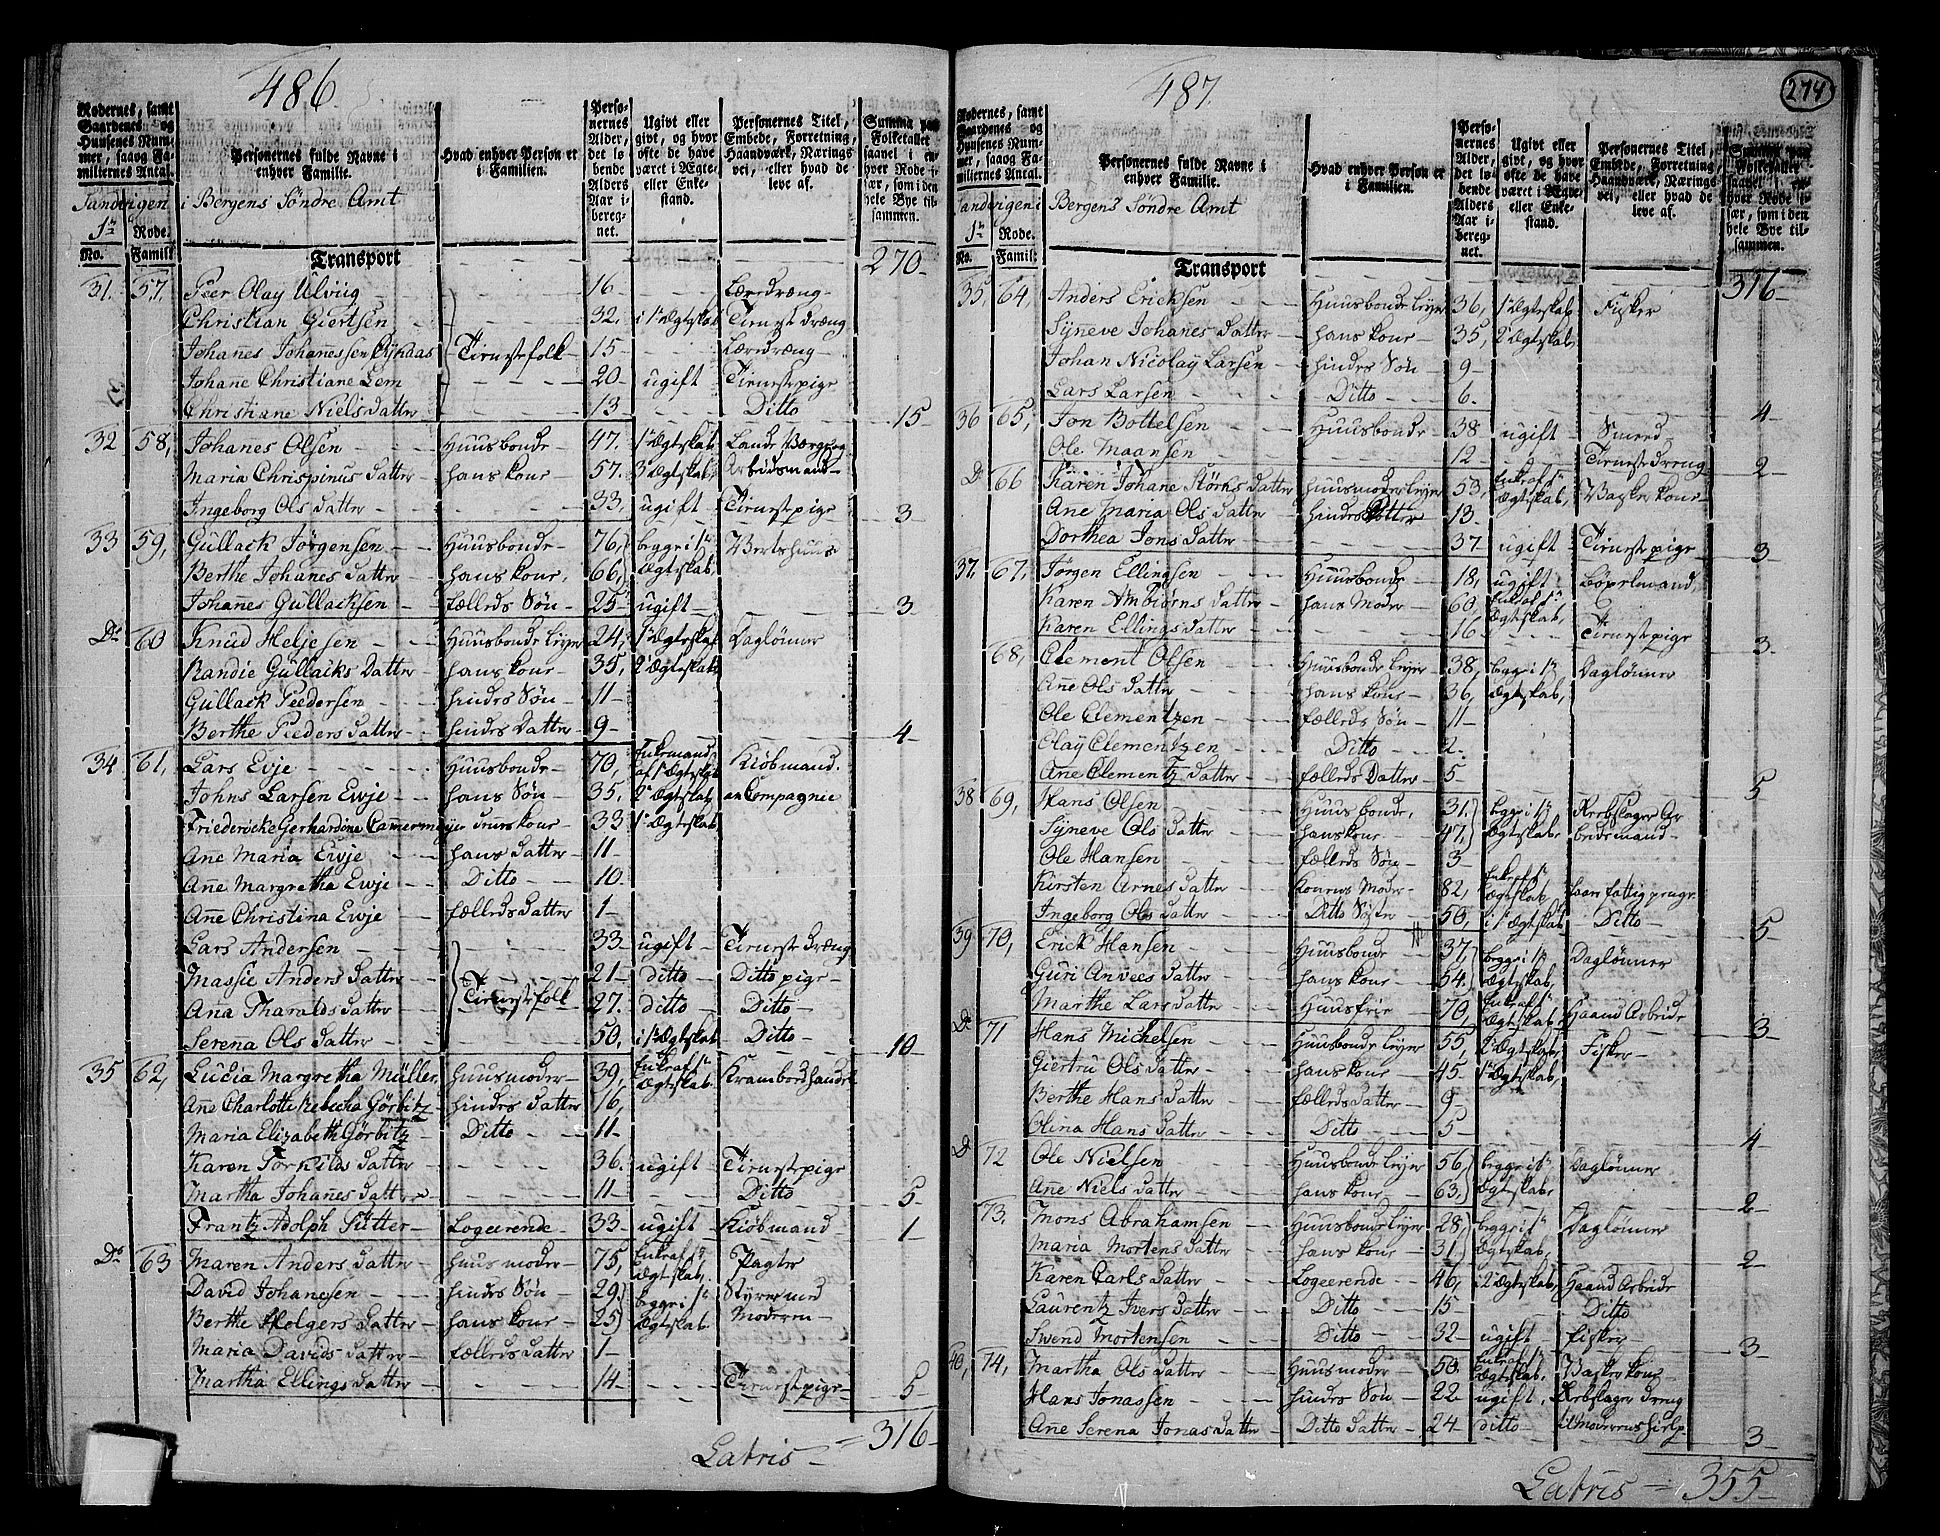 486
Rodernes, samt Gaardenes og Huusenes Nummer, saaog Familiernes Antal.
Personernes fulde Navne i enhver Familie.
Hvad enhver Person er i Familien.
Personernes Alder, det løbende Alders Aar iberegnet.
Ugivt eller givt, og hvor ofte de have været i Ægte- eller Enkestand.
Personernes Titel, Embede, Forretning, Haandværk, Næringsvei, eller hvad de leve af.
Summa paa Folketallet saavel i enhver Rode især, som i den hele Bye tilsammen.
Sandvigen i Bergens Søndre Amt
1te Rode.
No. Famili
Transport 270
31. 57, Peer Olay Ulviig 16 Læredræng
Christian Giertsen 32, i 1te Ægteskab Tienestdræng
Johañes Johañessen Tienestefolk 15 Læredræng
Johañe Christiane Lem 20 ugift Tienestepige
Christiane Nielsdatter 13 Ditto 15
32 58, Johanes Olsen Huusbonde 47. 1te Ægteskab
Maria Chrispinus datter hans kone 57. 3 Ægteskab Arbeidsmand
Ingeborg Ols datter 33, ugift Tienestepige 3
33 59, Gullack Jørgensen Huusbonde 76, begge i 1te Vertshuus
Berthe Johanes datter hans kone, 66, Ægteskab,
Johañes Gullacksen fælleds Søn 25 ugift 3
Do 60 Knud Heljesen Huusbonde leyer 24, 1te Ægteskab Dagløner
Randie Gullacks Datter hans kone 35, 2 Ægteskab
Gullack Peedersen hindes Søn 11
Berthe Peeders datter hindes Datter 9 4
34 61, Lars Evje Huusbonde 70, Enkemand af 1te Ægteskab Kiøbmand.
Johns Larsen Ewje hans Søn 35, 2 Ægteskab en Compagnie
Friedericke Gerhardina Cammermeyer dennes kone 33 1te Ægteskab,
Ane Maria Ewje hans datter 11
Añe Margretha Ewje Ditto 10
Añe Christina Ewje fælleds datter 1
Lars Andersen 33 ugift Tienest dræng
Massie Anders datter Tienestefolk 21 ditto Ditto pige
Ana Tharalds datter 27. ditto Ditto
Serena Ols datter 50, i 1te Ægteskab Ditto 10
35 62, Lucia Margretha Müller, huusmoder 39, Enke af 1te Ægteskab Kramboedhandel
Añe Charlotte Rebecha Görbitz hindes datter 16,
Maria Elizabeth Görbitz Ditto 11
Karen Torkilds datter 36. ugift Tienestepige
Martha Johañes datter 11 Ditto 5
Frantz Adolph Sutter Logeerende 33 ugift Kiøbmand 1
Do 63 Maren Anders datter huusmoder 75, Enke af 1te Ægteskab.
David Johañesen hindes Søn 29, begge i 1te
Berthe Holgers datter hans kone 25 Ægteskab Moderen
Maria Davids datter fælleds datter 1
Martha Ellings datter 14 Tienestepige 5
Latris = 316
487.
274
Rodernes, samt Gaardenes og Huusenes Nummer, saaog Familiernes Antal.
Personernes fulde Navne i enhver Familie.
Hvad enhver Person er i Familien.
Personernes Alder, det løbende Alders Aar iberegnet.
Ugivt eller givt, og hvor ofte de have været i Ægte- eller Enkestand.
Personernes Titel, Embede, Forretning, Haandværk, Næringsvei, eller hvad de leve af.
Summa paa Folketallet saavel i enhver Rode især, som i den hele Bye tilsammen.
Sandvigen i Bergens Søndre Amt
1te Rode.
No. Famili
Transport 316
35, 64, Anders Ericksen Huusbonde leyer 36, 1te Ægteskab Fisker
Syneve Johañes datter hans kone 35, 2 Ægteskab,
Johan Nicolay Larsen hindes Søn 9
Lars Larsen Ditto 6. 4
36 65, Jon Bottelsen Huusbonde 38 ugift Smeed
Ole Maansen 12 Tienestedreng 2
Do 66 Karen Johane Størks datter huusmoder leyer 53, Enke af 1te Ægteskab, Vaskerkone
Ane Maria Ols datter hindes Datter 13.
Dorthea Jons datter 37 ugift Tienestepige 3
37. 67, Jørgen Ellingsen Huusbonde 18, ugift
Karen Ambiørns datter hans Moder 60, Enke af 1te Ægteskab,
Karen Ellings datter 16 Tienestepige 3
68, Clement Olsen Huusbonde leyer 38, begge i 1te Dagløner
Añe Ols datter hans kone 36, Ægteskab,
Ole Clementzen fælleds Søn 11
Olay Clementzen Ditto 2.
Ane Clementz datter fælleds Datter 5 5
38 69, Hans Olsen Huusbonde, 31. begge i 1te Reebslager Arbeidsmand
Syneve Ols datter hans kone 47. Ægteskab,
Ole Hansen fælleds Søn 3
Kirsten Arnes datter Konens Moder 82, Enke af 1te Ægteskab,
Ingeborg Ols datter Ditto Søster 50, i 1te Ægteskab Ditto 5
39 70, Erick Hansen Huusbonde 37, begge i 1te Dagløner
Guri Anvees datter hans kone 54. Ægteskab,
Marthe Lars datter Huusfrie 70, Enke af 1te Ægteskab, Haand Arbeide 3
Do 71 Hans Michelsen Huusbonde leyer 55, 2 Ægteskab, Fisker
Giertru Ols datter hans kone 45. 1te Ægteskab,
Berthe Hans datter fælleds datter 9
Olina Hans datter Ditto 5 4
Do 72 Ole Nielsen Huusbonde leyer 56, begge i 1te Dagløner
Añe Niels datter hans kone 63. Ægteskab 2
73. Mons Abrahamsen Huusbonde leyer 28, begge i 1te Dagløner
Maria Mortens datter hans kone 31. Ægteskab, 2
Karen Carls datter Logeerende 46, i 2 Ægteskab, Haand Arbeide
Laurentz Ivers datter Ditto 15 Ditto
Swend Mortensen Ditto 32 ugift fisker 3
40, 74, Martha Ols datter Huusmoder 50 Enke af 1te Ægteskab. Vaskerkone
Hans Jonassen hindes Søn 22 ugift, Reebslager dreng
Añe Serena Jonas datter Ditto datter 24 ditto til Moderens hielp 3
Latris = 355